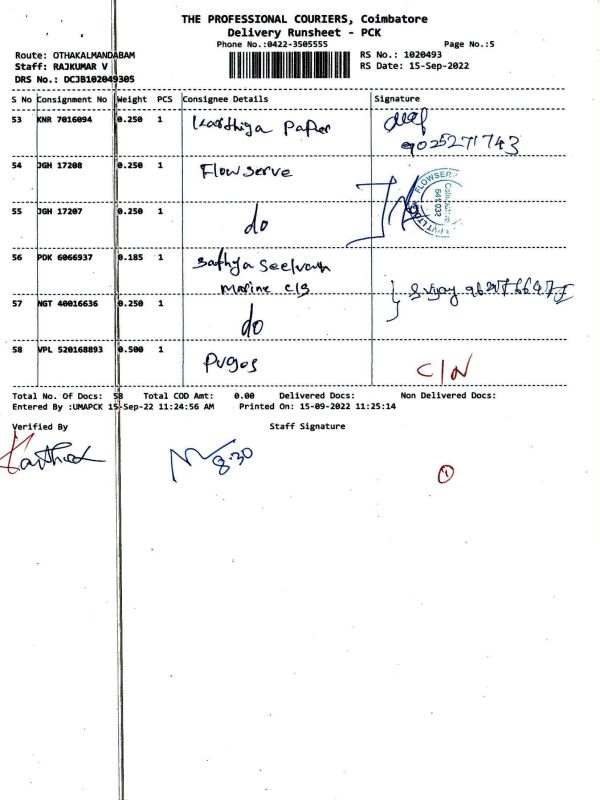 THE PROFESSIONAL COURIERS, Coimbatore
Delivery Runsheet - PCK
Phone No.:0422-3505555 Page No.:5
Route: OTHAKALMANDABAM RS No.: 1020493
Staff: RAJKUMAR V RS Date: 15-Sep-2022
DRS No.: DCJB102049305
S No Consignment No Weight PCS Consignee Details Signature
53 KNR 7016094 0.250 1 Karthiga Paper
9025271743
54 JGH 17208 0.250 1 Flowserve
FLOWSER
Coimbatore
641 032
VT LTD
55 JGH 17207 0.250 1 do
56 PDK 6066937 0.185 1 Sathya
Marine
57 NGT 40016636 0.250 1 do
S vijay
58 VPL 520168893 0.500 1 Pugos C/N
Total No. Of Docs: 58 Total COD Amt: 0.00 Delivered Docs: Non Delivered Docs:
Entered By :UMAPCK 15-Sep-22 11:24:56 AM Printed On: 15-09-2022 11:25:14
Verified By Staff Signature
8:30
1